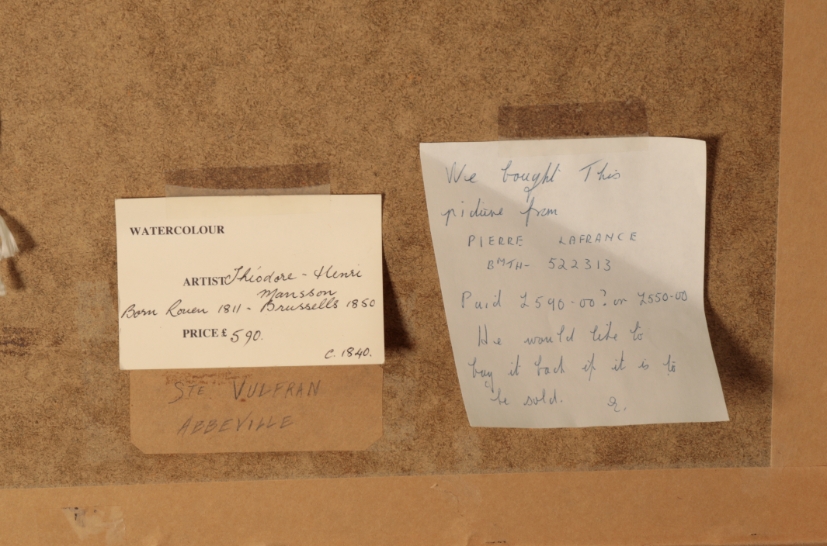 WATERCOLOUR
ARTIST Théodore-Henri
Mansson
Born Rouen 1811 - Brussells 1850
PRICE £ 590.
C. 1840.
STE VULFRAN
ABBEVILLE
We bought This
picture from
PIERRE LAFRANCE
BMTH - 522313
Paid £590-00? or £550-00
He would like to
buy it back if it is to
be sold.